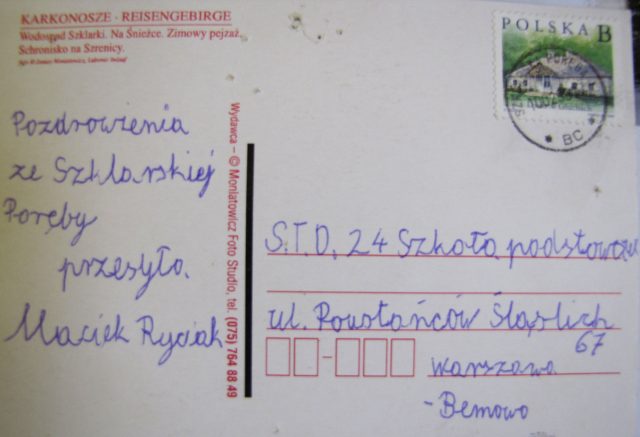 KARKONOSZE - REISENGEBIRGE
Wodospad Szklarki. Na Śnieżce. Zimowy pejzaż.
Schronisko na Szrenicy.
Pozdrowienia
ze Szklarskiej
Poręby
przesyła
Maciek Ryciak
Wydawca – © Moniatowicz Foto Studio, tel. (075) 764 88 49
POLSKA B
BC
S.T.D. 24 Szkoła podstowowa
ul. Powstańców Śląslich
67
Warszawa
-Bemowo